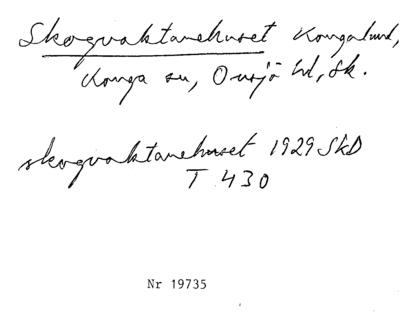 Skogvaktarehuset Kongalund,
Konga sn, Onsjö hd, Sk.
skogvaktarehuset 1929 SkD
T 430
Nr 19735